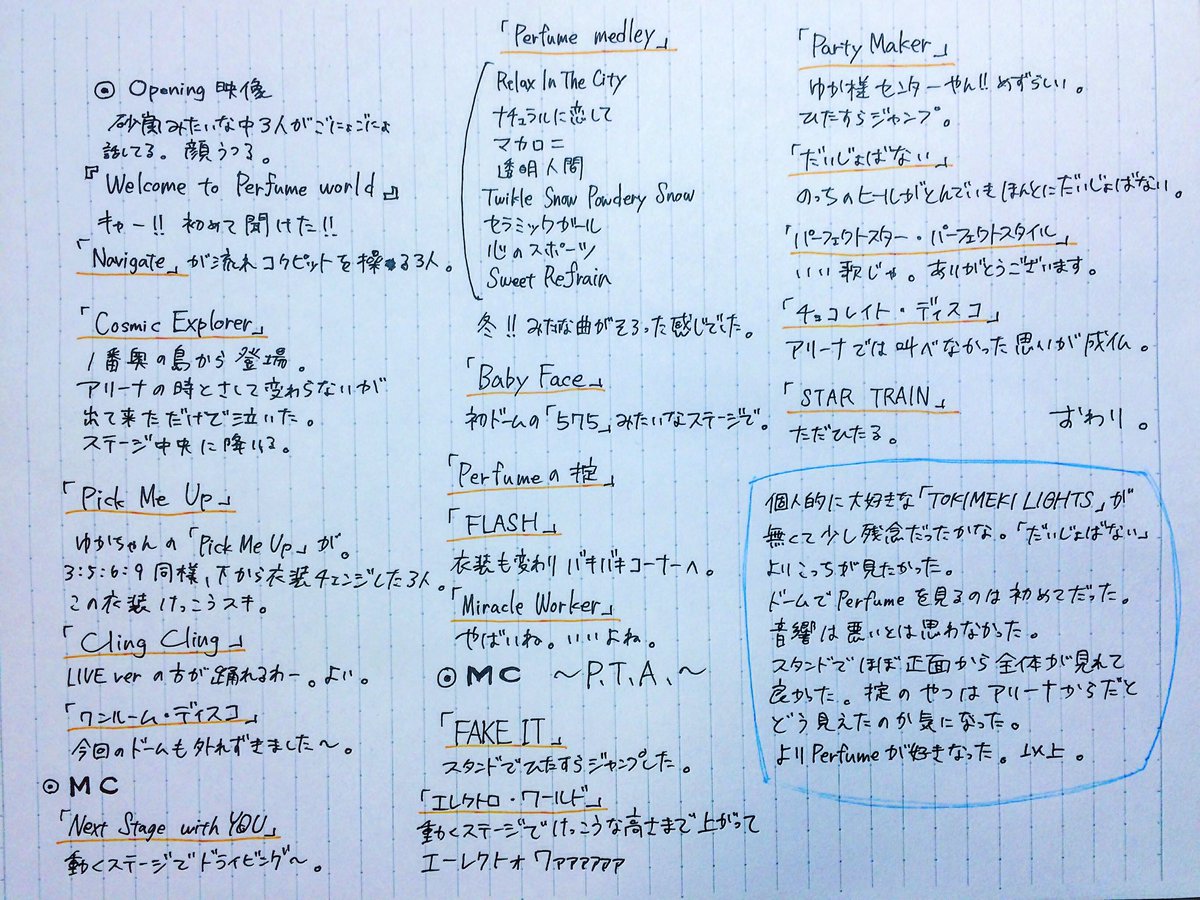 ◉ Opening 映像
砂嵐みたいな中3人がごにょごにょ
話してる。顔うつる。
『Welcome to Perfume world』
キャー!! 初めて聞けた!!
「Navigate」が流れコクピットを操る3人。
「Cosmic Explorer」
1番奥の島から登場。
アリーナの時とさして変わらないが
出て来ただけで泣いた。
ステージ中央に降りる。
「Pick Me Up」
ゆかちゃんの「Pick Me Up」が。
3:5:6:9同様、下から衣装チェンジした3人。
この衣装けっこうスキ。
「Cling Cling」
LIVE verの方が踊れるわー。よい。
「ワンルーム・ディスコ」
今回のドームも外れずきました〜。
◉ MC
「Next Stage with YOU」
動くステージでドライビング〜。
「Perfume medley」
Relax In The City
ナチュラルに恋して
マカロニ
透明人間
Twikle Snow Powdery Snow
セラミックガール
心のスポーツ
Sweet Refrain
冬!! みたいな曲がそろった感じでした。
「Baby Face」
初ドームの「575」みたいなステージで。
「Perfumeの掟」
「FLASH」
衣装も変わりバキバキコーナーへ。
「Miracle Worker」
やばいね。いいよね。
◉ MC 〜P.T.A.〜
「FAKE IT」
スタンドでひたすらジャンプした。
「エレクトロ・ワールド」
動くステージでけっこうな高さまで上がって
エーレクトォワァァァァァ
「Party Maker」
ゆか様センターやん!! めずらしい。
ひたすらジャンプ。
「だいじょばない」
のっちのヒールがとんでいきほんとにだいじょばない。
「パーフェクトスター・パーフェクトスタイル」
いい歌じゃ。ありがとうございます。
「チョコレイト・ディスコ」
アリーナでは叫べなかった思いが成仏。
「STAR TRAIN」
ただひたる。
おわり。
個人的に大好きな「TOKIMEKI LIGHTS」が
無くて少し残念だったかな。「だいじょばない」
よりこっちが見たかった。
ドームでPerfumeを見るのは初めてだった。
音響は悪いとは思わなかった。
スタンドでほぼ正面から全体が見れて
良かった。掟のやつはアリーナからだと
どう見えたのか気になった。
よりPerfumeが好きなった。以上。